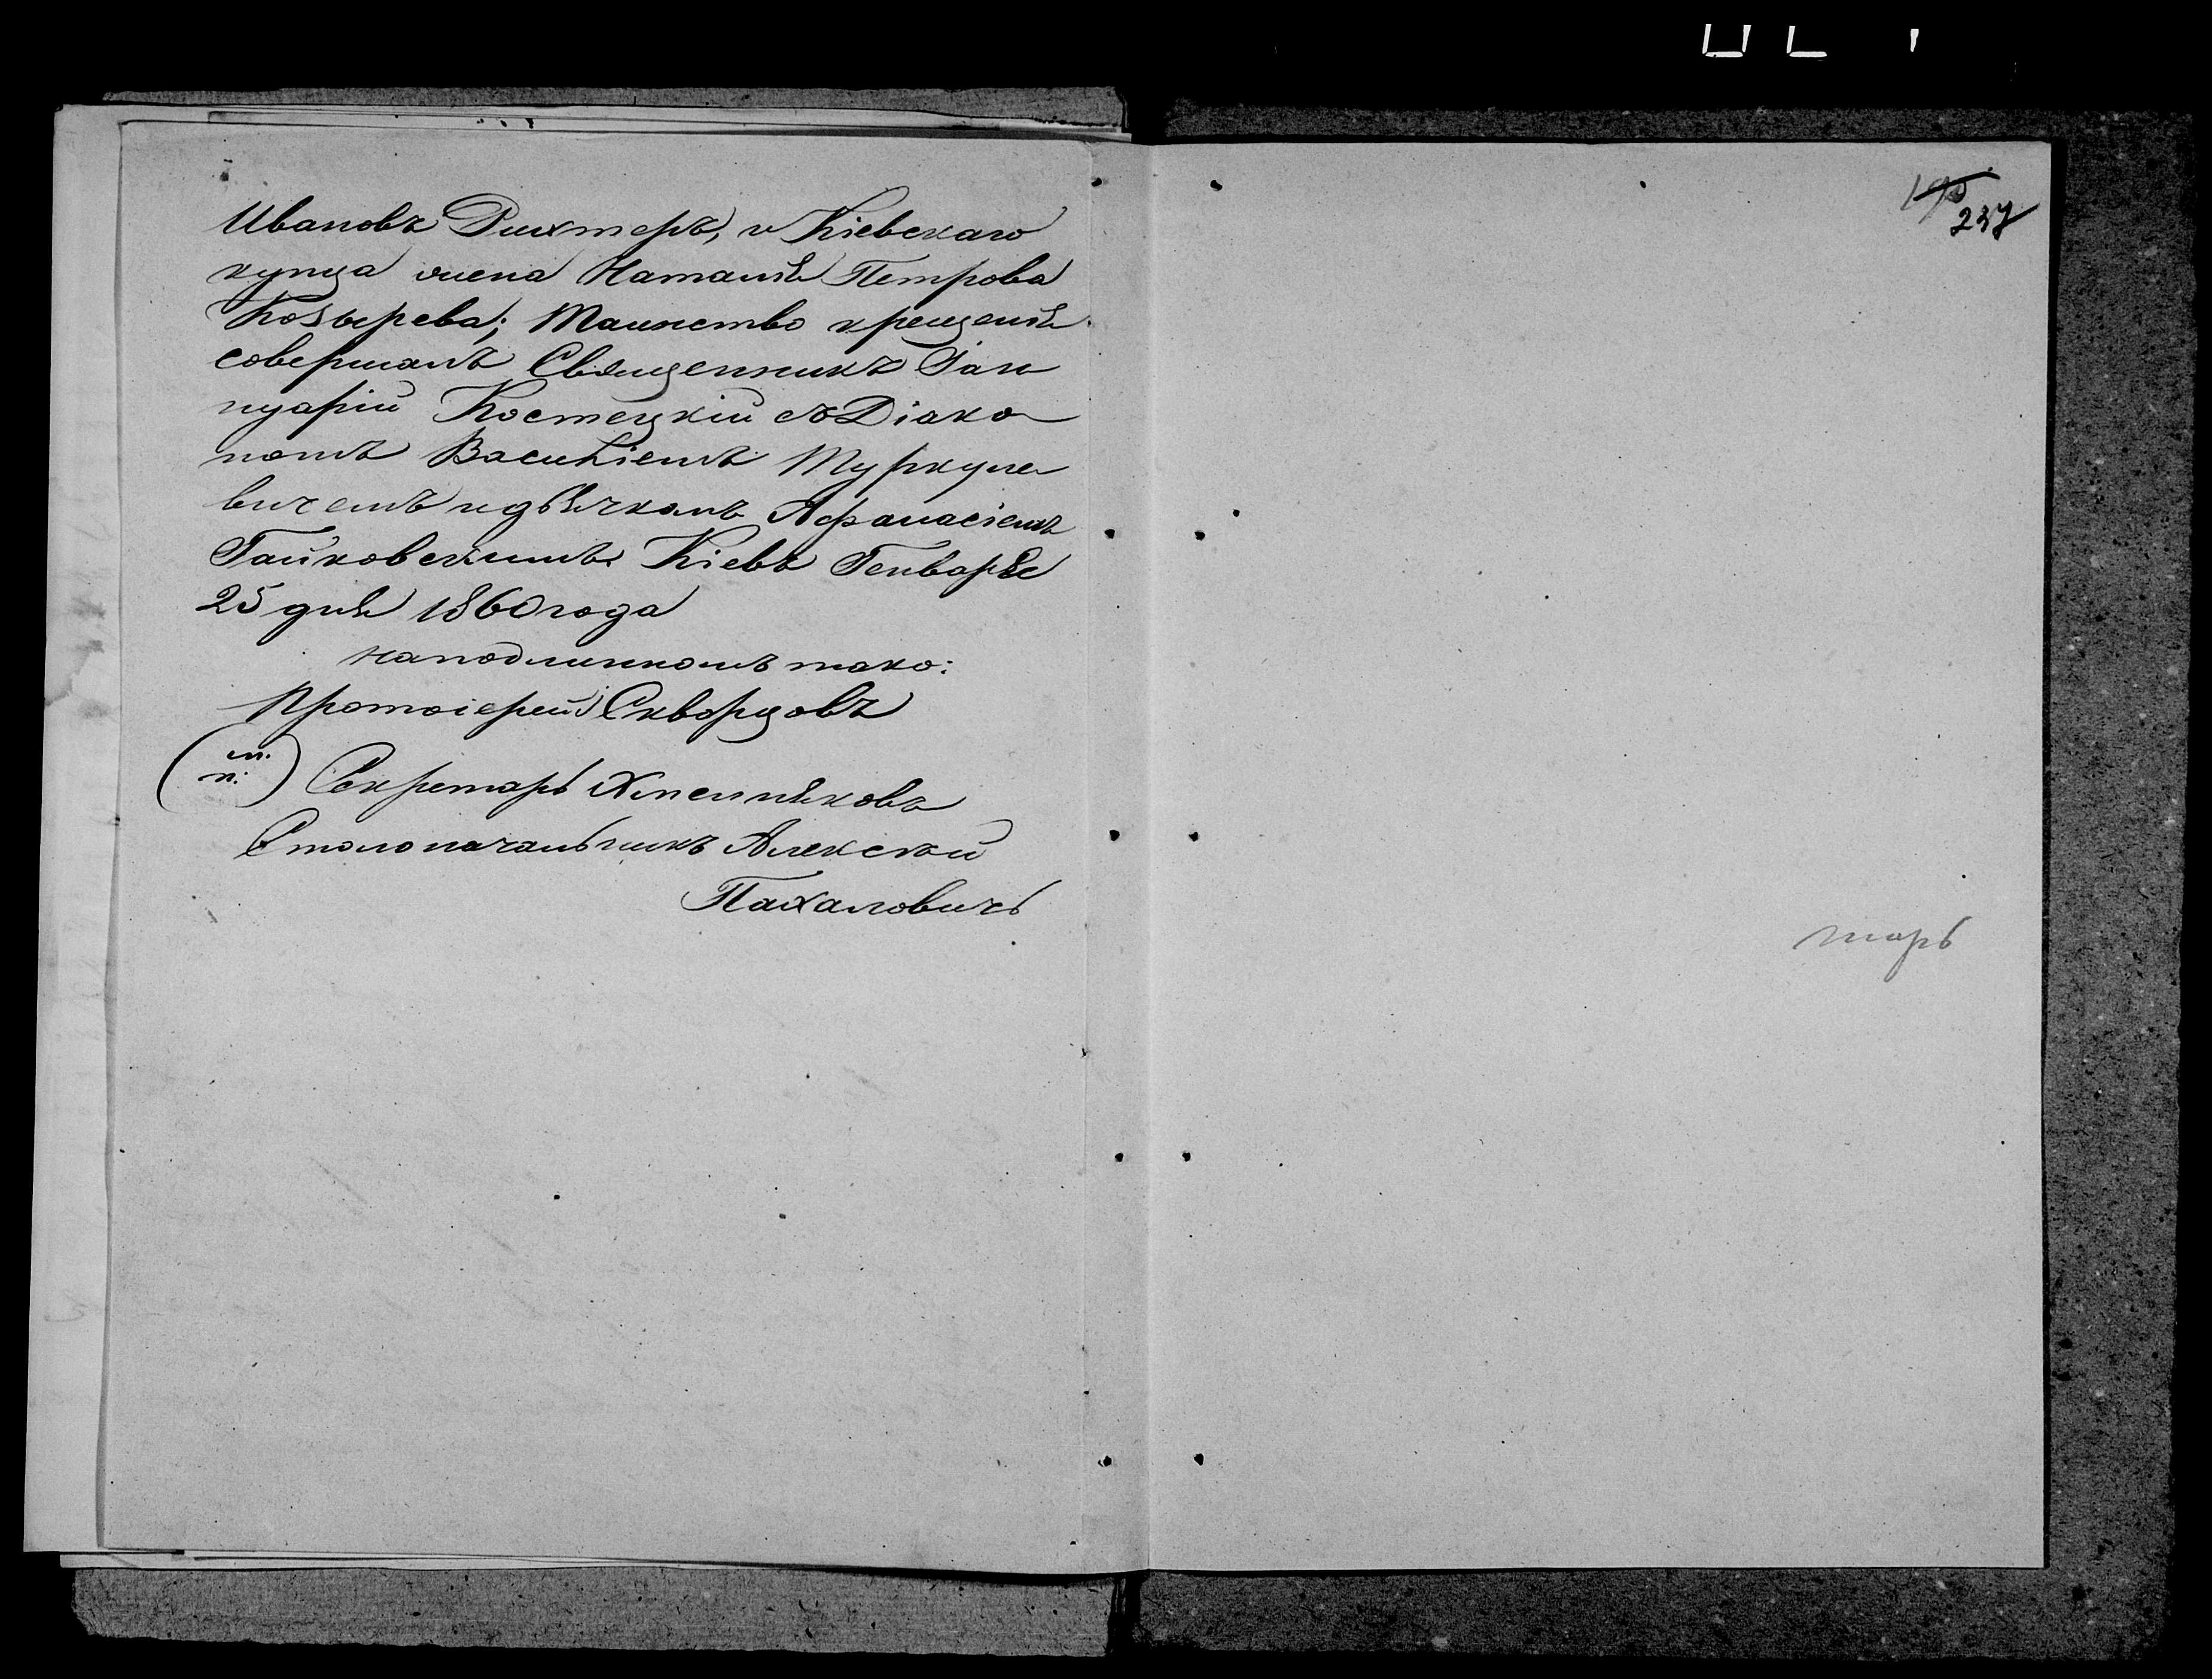 Ивановъ Рихтеръ, и Кіевскаго
купца жена Наталія Петрова
Козырева; Таинство крещенія
совершалъ Священникъ Іан
нуарій Костецкій съ Діако
номъ Василіемъ Туркуле
вичемъ и дьячкомъ Афанасіемъ
Гайковскимъ. Кіевъ Генваря
25 дня 1860 года
На подлинномъ тако:
Протоіерей Скворцовъ
(м. п.) Секретарь
Столоначальникъ Алексѣй
Пахаловичъ
237
тарь